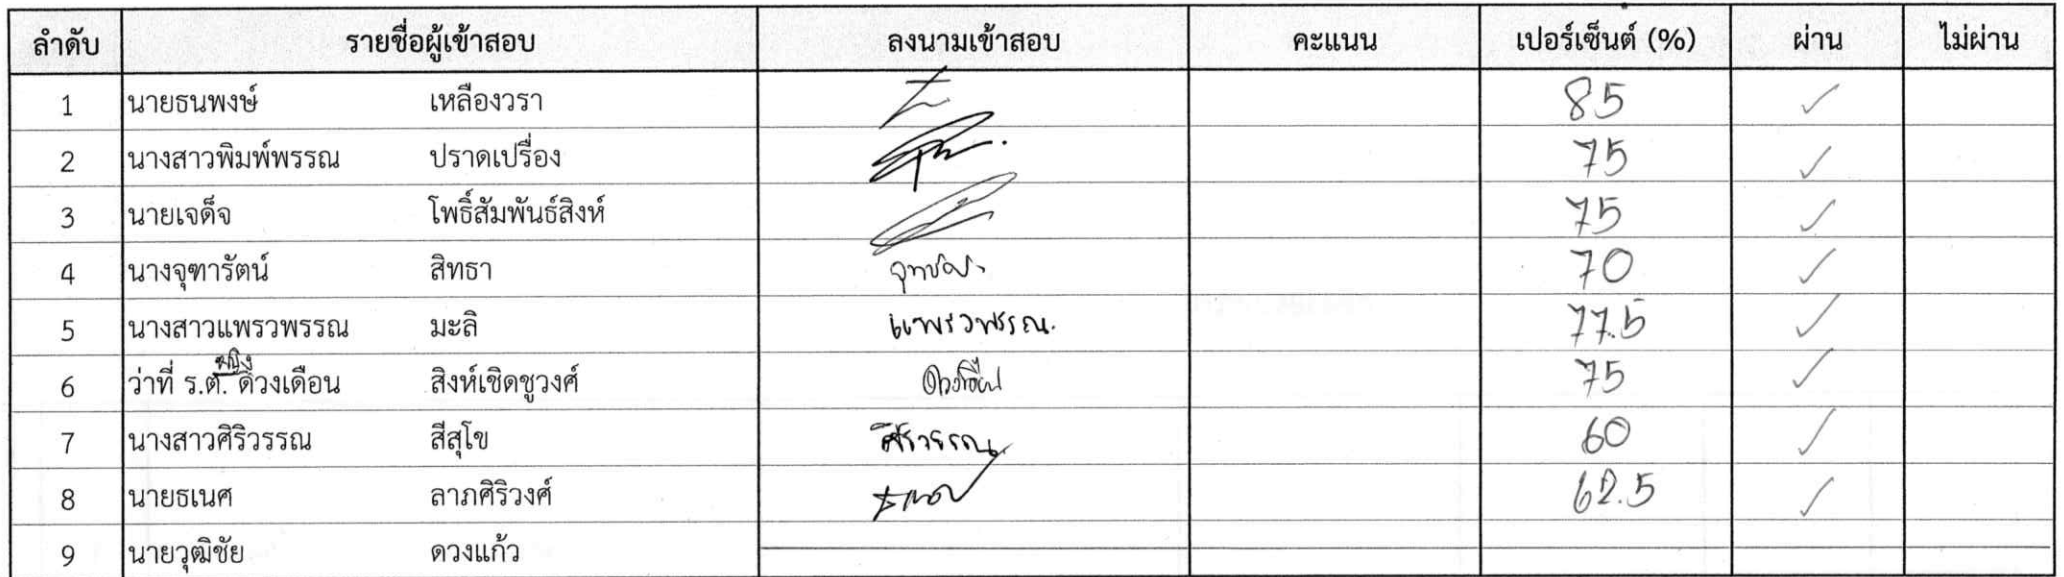 ลำดับ รายชื่อผู้เข้าสอบ ลงนามเข้าสอบ คะแนน เปอร์เซ็นต์ (%) ผ่าน ไม่ผ่าน
1 นายธนพงษ์ เหลืองวรา 85 ✓
2 นางสาวพิมพ์พรรณ ปราดเปรื่อง 75 ✓
3 นายเจด็จ โพธิ์สัมพันธ์สิงห์ 75 ✓
4 นางจุฑารัตน์ สิทธา 70 ✓
5 นางสาวแพรวพรรณ มะลิ แพรวพรรณ. 77.5 ✓
หญิง
6 ว่าที่ ร.ต. ดวงเดือน สิงห์เชิดชูวงศ์ ดวงเดือน 75 ✓
7 นางสาวศิริวรรณ สีสุโข ศิริวรรณ 60 ✓
8 นายธเนศ ลาภศิริวงศ์ ธเนศ 62.5 ✓
9 นายวุฒิชัย ดวงแก้ว